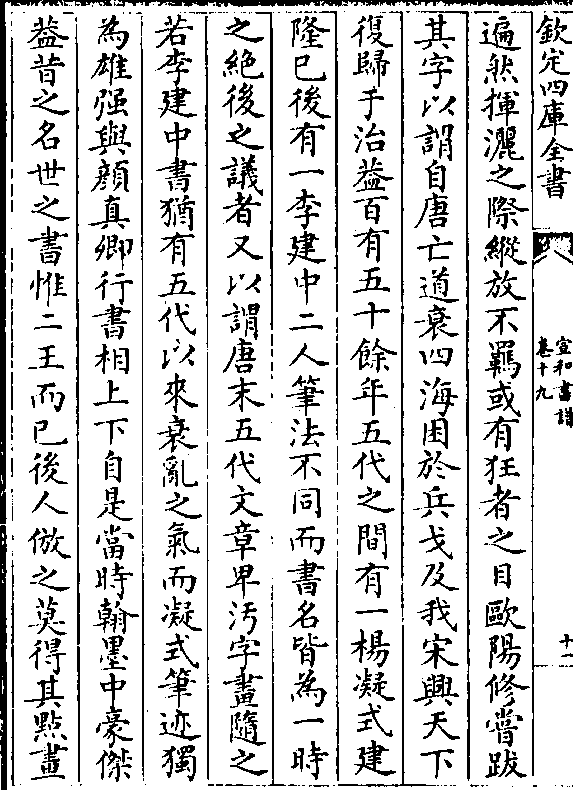 欽定四庫全書
宣和書譜
卷十九
十二
遍然揮灑之際縱放不羈或有狂者之目歐陽修嘗跋
其字以謂自唐亡道衰四海困於兵戈及我宋興天下
復歸于治葢百有五十餘年五代之間有一楊凝式建
隆已後有一李建中二人筆法不同而書名皆為一時
之絶後之議者又以謂唐末五代文章卑汚字畫隨之
若李建中書猶有五代以來衰亂之氣而凝式筆迹獨
為雄强與顔真卿行書相上下自是當時翰墨中豪傑
葢昔之名世之書惟二王而已後人倣之莫得其㸃畫